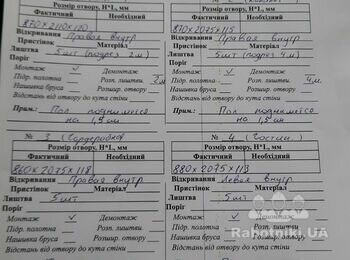 Розмір отвору, Н*L, мм
Фактичний Необхідний
870x2110x120
Відкривання Правая внутр
Пристінок Матеріал
Лиштва 5 шт (подрез 2м)
Поріг
Монтаж Демонтаж
Підр. полотна Розп. лиштви 2м
Нашивка бруса Розширення отвору
Відстань від отвору до кута стіни
Прим.: Пол поднимется
на 1,5 см
Розмір отвору, Н*L, мм
Фактичний Необхідний
870x2075x115
Відкривання Правая внутр
Пристінок Матеріал
Лиштва 5 шт (подрез 4м)
Поріг
Монтаж Демонтаж
Підр. полотна Розп. лиштви 4м
Нашивка бруса Розшир. отвору
Відстань від отвору до кута стіни
Прим.: Пол поднимется
на 1,5 см
№ 3 (Гардеробная)
Розмір отвору, Н*L, мм
Фактичний Необхідний
860x2075x118
Відкривання Правая внутр
Пристінок Матеріал
Лиштва 5 шт
Поріг
Монтаж Демонтаж
Підр. полотна Розп. лиштви
Нашивка бруса Розшир. отвору
Відстань від отвору до кута стіни
№ 4 (Гостин.)
Розмір отвору, Н*L, мм
Фактичний Необхідний
880x2075x113
Відкривання Левая внутр
Пристінок Матеріал
Лиштва 5 шт
Поріг
Монтаж Демонтаж
Підр. полотна Розп. лиштви
Нашивка бруса Розшир. отвору
Відстань від отвору до кута стіни
Rabotniki.UA